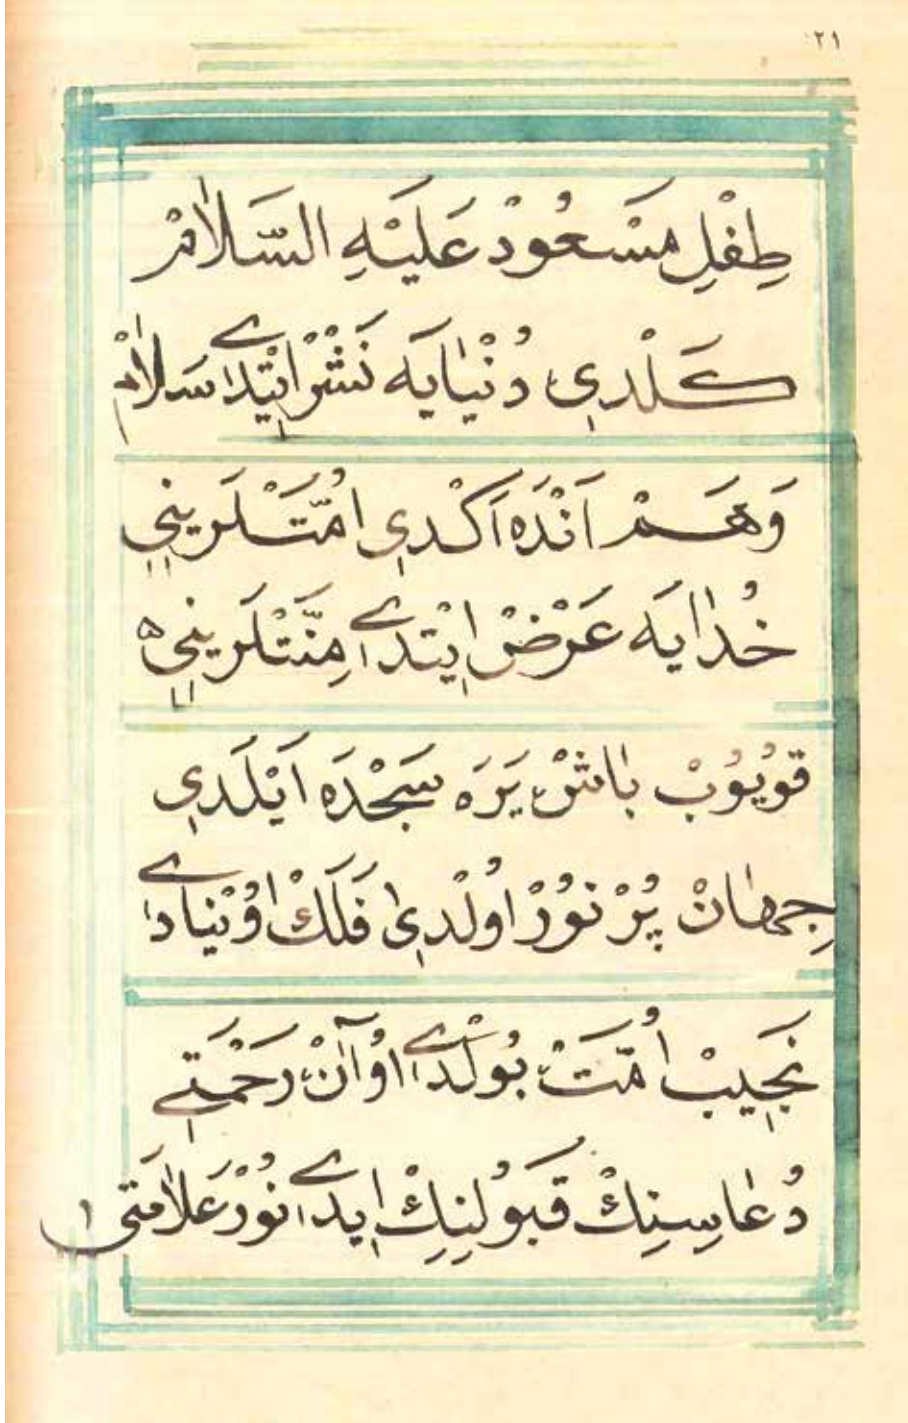 ٢١
طِفْلِ مَسْعُودْ عَلَيْهِ السَّلَامْ
كَلْدِي دُنْيَايَه نَشْرْ اِيْتِدِي سَلَامْ
وَهَمْ اَنْدَه اَكْدِي اُمَّتْلَرِينِي
خُدَايَه عَرْضْ اِيْتِدِي مِنَّتْلَرِينِي
قُويُوبْ بَاشْ يَرَه سَجْدَه اَيْلَدِي
جِهَانْ پُرْ نُورْ اُولْدِي فَلَكْ اُوْيْنَادِي
نَجِيبْ اُمَّتْ بُولْدِي اُو آنْ رَحْمَتِي
دُعَاسِنِكْ قَبُولِنِكْ اِيدِي نُورْ عَلَامَتِي